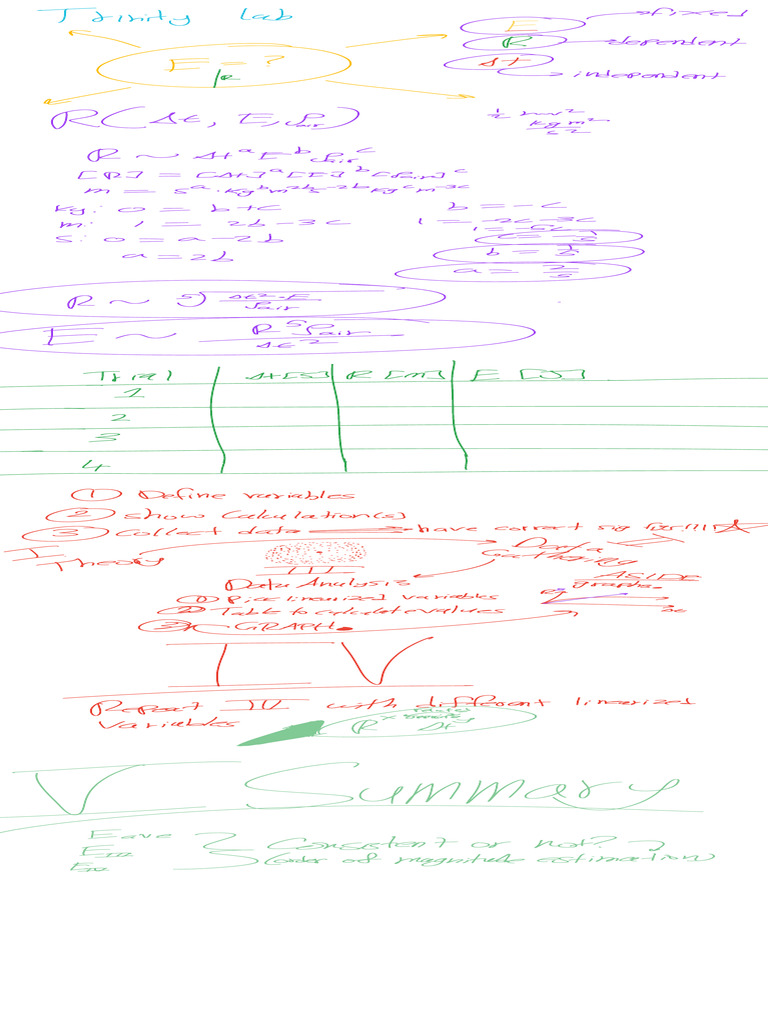 Trinity Lab
E → fixed
R → dependent
Δt → independent
E = ?
R
R(Δt, E, ρair)
½ mv²
kg m²/s²
R ~ Δt^a E^b ρair^c
[R] = [Δt]^a [E]^b [ρair]^c
m = s^a · kg^b m^2b s^-2b kg^c m^-3c
kg: 0 = b + c
b = -c
m: 1 = 2b - 3c
1 = -2c - 3c
1 = -5c
s: 0 = a - 2b
c = -1/5
a = 2b
b = 1/5
a = 2/5
R ~ 5√(Δt² · E / ρair)
E ~ R⁵ρair / Δt²
Trial Δt [s] R [m] E [J]
1
2
3
4
① Define variables
② Show Calculation(s)
③ Collect data → have correct sig figs!!!
I Theory
II
Data Gathering
III
Data Analysis
ASIDE
graphs
① Pick linearized variables
② Table to calculate values
③ GRAPH
y
x
IV
Repeat III with different linearized
variables
R Δt
V Summary
Eave
EIII
EIV
Consistent or not?
(order of magnitude estimation)